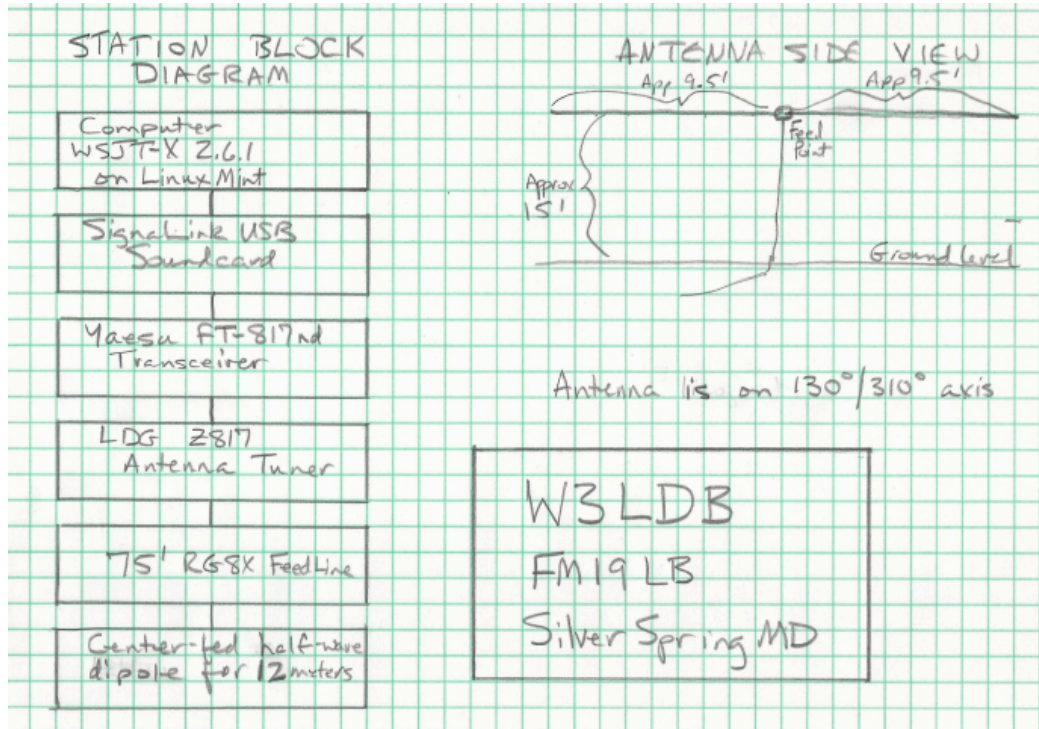 STATION BLOCK
DIAGRAM
Computer
WSJT-X 2.6.1
on Linux Mint
SignaLink USB
Soundcard
Yaesu FT-817nd
Transceiver
LDG Z817
Antenna Tuner
75' RG8X FeedLine
Center-fed half-wave
dipole for 12 meters
ANTENNA SIDE VIEW
App 9.5' App 9.5'
Feed
Point
Approx
15'
Ground level
Antenna is on 130°/310° axis
W3LDB
FM19LB
Silver Spring MD